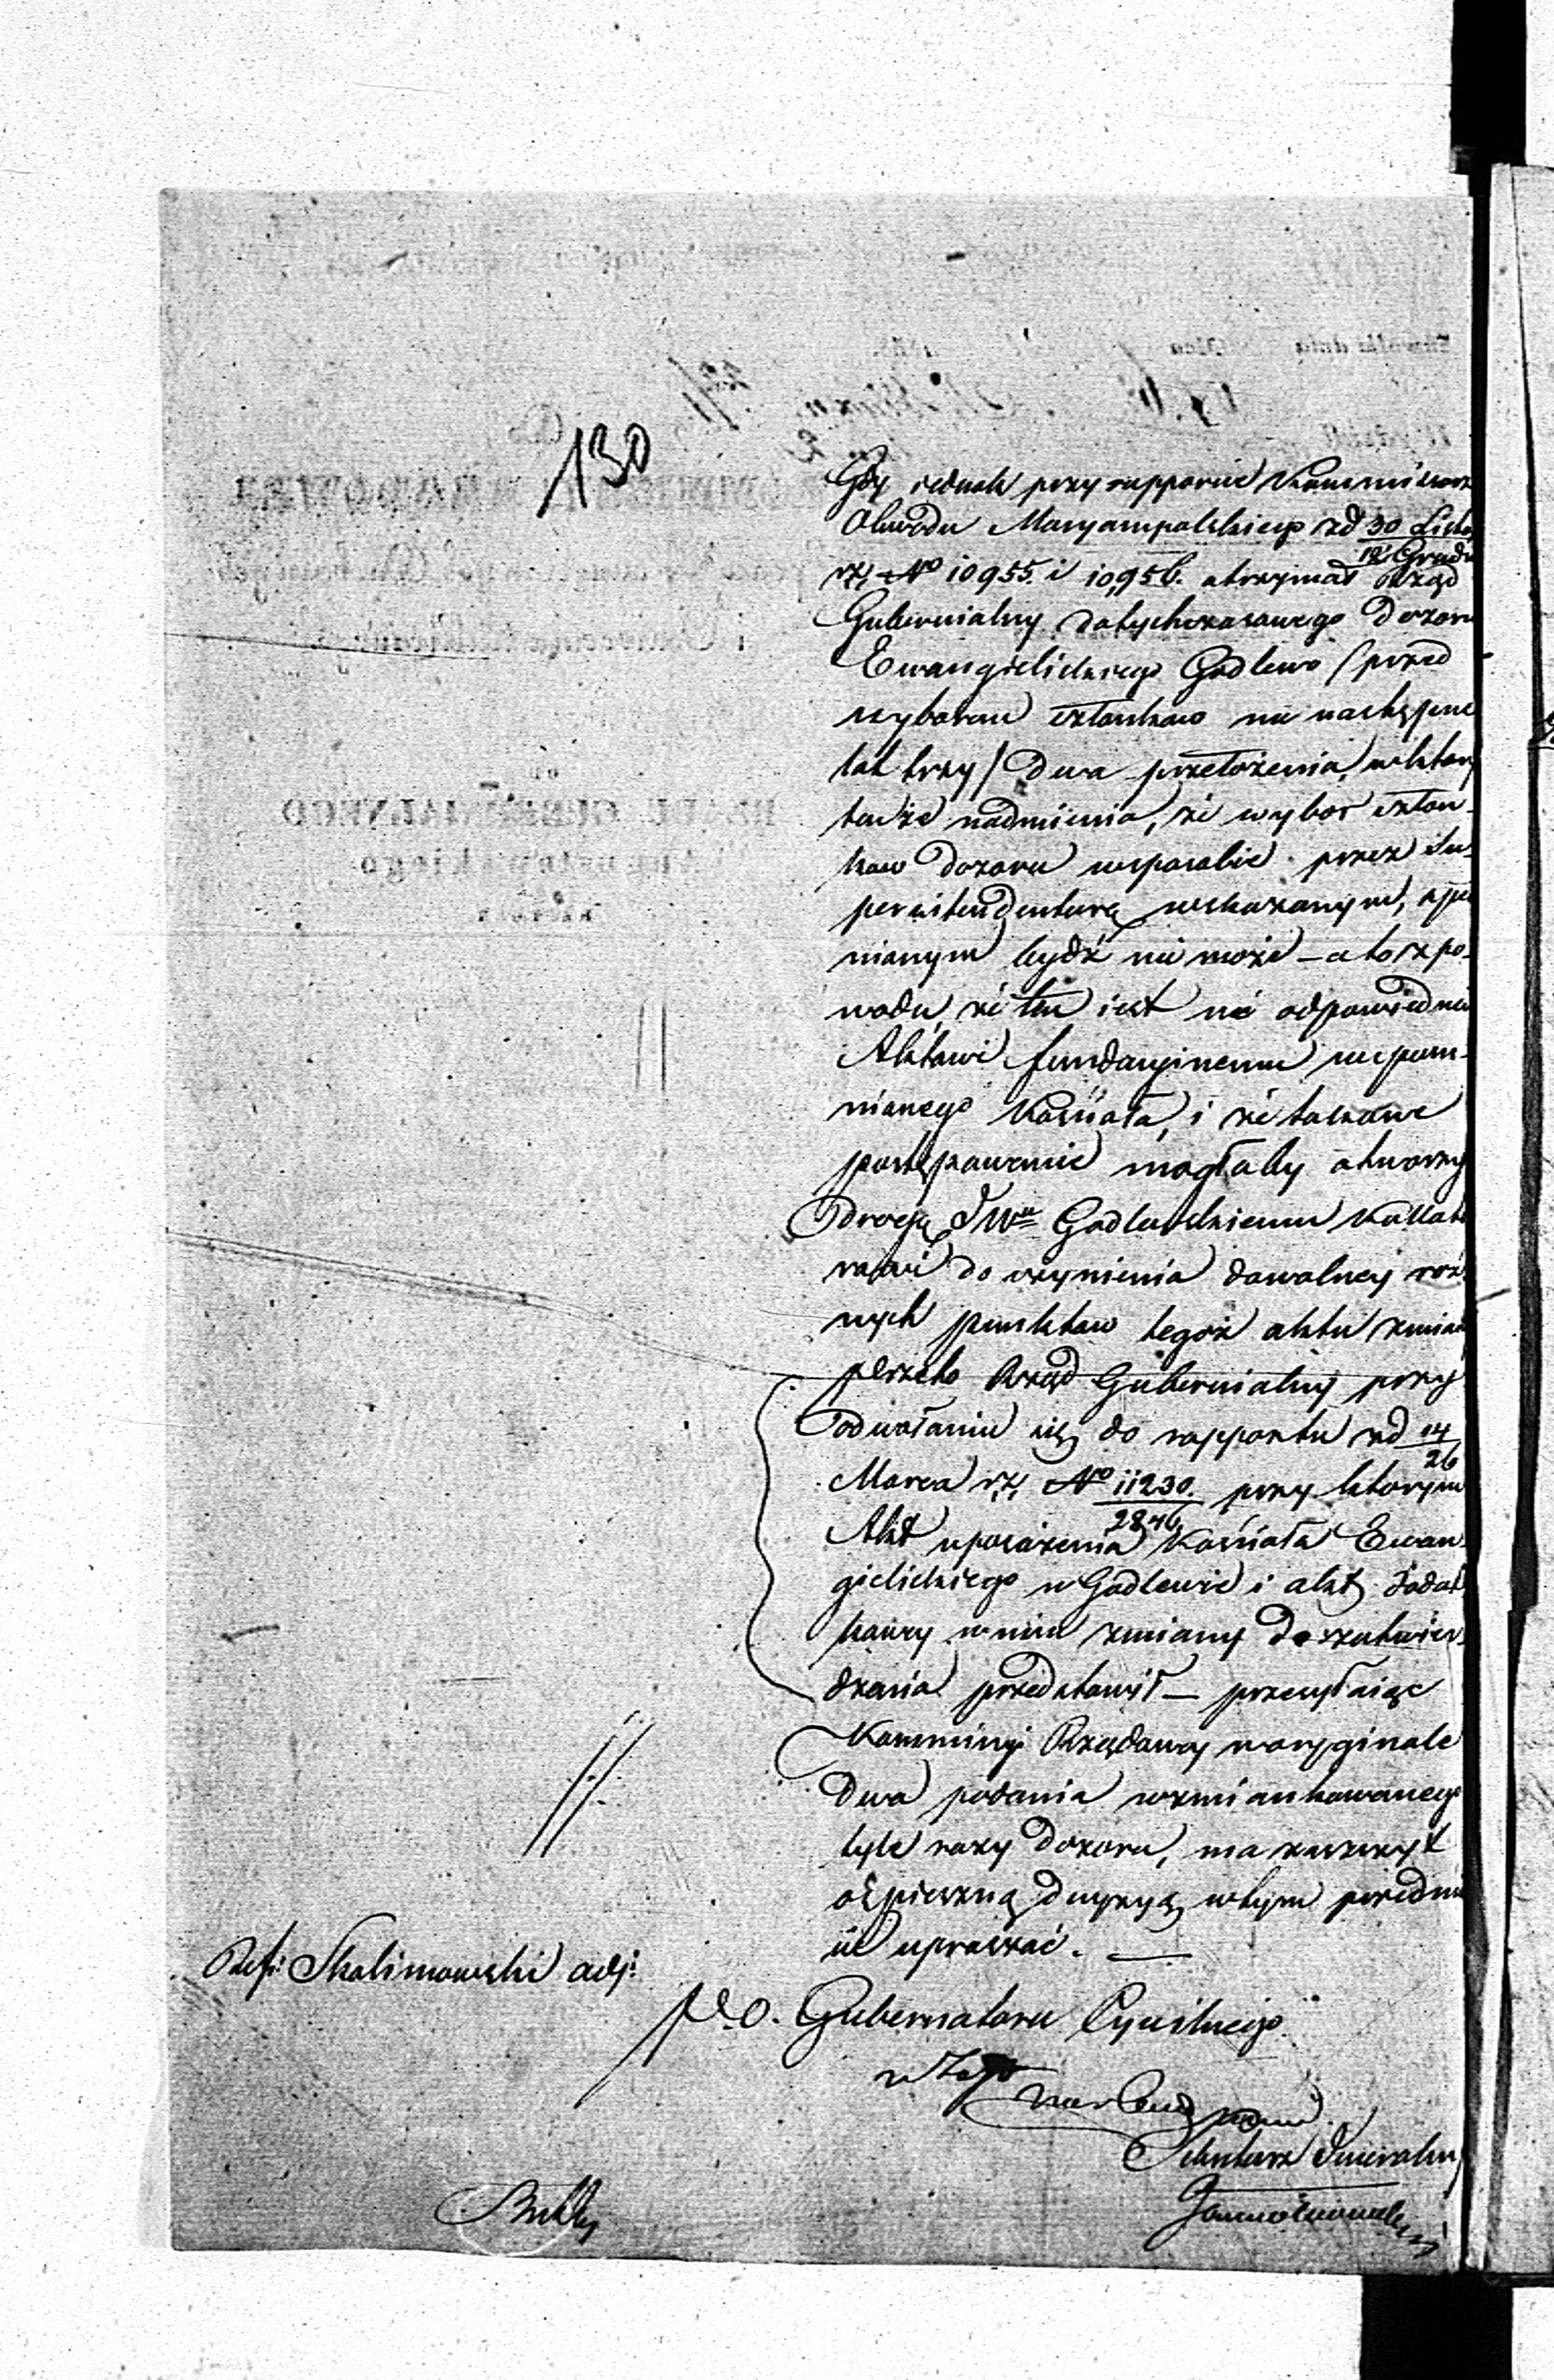 130
Gdy iednak przy rapporcie Kommissarz
Obwodu Maryampolskiego zd 30 Listo
12 Grudn
r.z. No 10955. i 10,956. otrzymał Rząd
Gubernialny dotychczasowego Dozoru
Ewangielickiego Godlewo /przed
wyborem członkow na następne
lat trzy/ dwa przełożenia, w ktory
tenże nadmienia, że wybor człon-
kow Dozoru w sposobie przez Su-
perintendenturę wskazanym, speł
nianym bydź nie może – a to z po-
wodu, że ten iest nie odpowiedni
Aktowi fundacyinemu wspom-
nianego Kościoła, i że takowe
postępowanie mogłoby otworzy
drogę JWu Godlewskiemu Kollato
rowi do czynienia dowolney roż
nych punktow tegoż aktu zmian
przeto Rząd Gubernialny przy
odwołaniu się do rapportu zd 14
26
Marca r.z. No 11230. przy ktorym
2846.
Akt uposażenia Kościoła Ewan-
gielickiego w Godlewie i akt dodat
kowy w nim zmiany do zatwier-
dzenia przedstawił – przesyłaiąc
Kommissyi Rządowey w oryginale
dwa podania wzmiankowanego
tyle razy Dozoru, ma zaszczyt
o śpieszną decyzyą w tym przedmi
ie upraszać. —
Ref: Skalimowski adj:
p.o. Gubernatora Cywilnego
w Z
Sekretarz Jeneralny